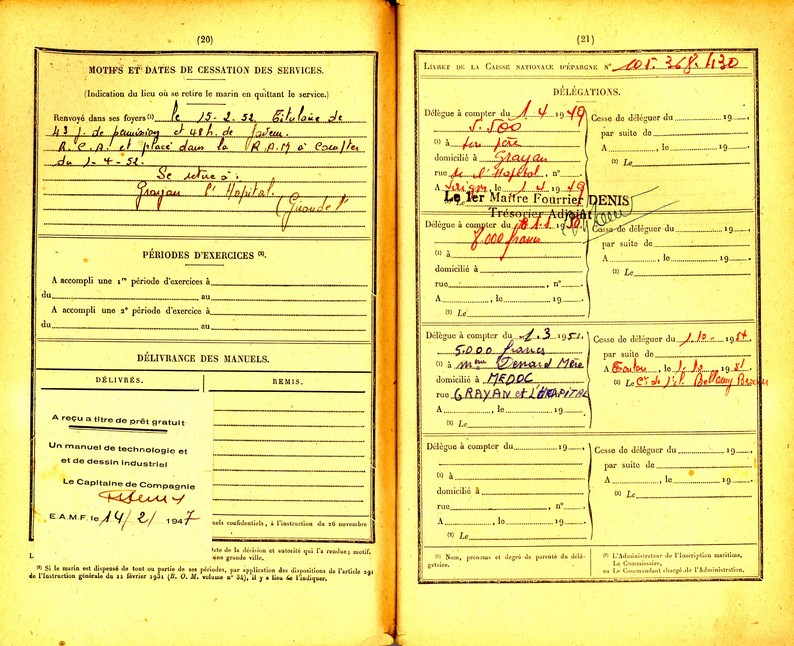 (20)
MOTIFS ET DATES DE CESSATION DES SERVICES.
(Indication du lieu où se retire le marin en quittant le service.)
Renvoyé dans ses foyers (1) le 15-2.52. Titulaire de
43 j. de permission et 48h. de faveur.
R.C.A. et placé dans la R.A.M à compter
du 1-4-52.
Se retire à :
Grayan l'Hopital.
(Gironde)
PÉRIODES D'EXERCICES (2).
A accompli une 1re période d'exercices à
du au
A accompli une 2e période d'exercice à
du au
DÉLIVRANCE DES MANUELS.
DÉLIVRÉS. REMIS.
A reçu a titre de prêt gratuit
Un manuel de technologie et
et de dessin industriel
Le Capitaine de Compagnie
E.A.M.F. le 14/2/ 1947
uels confidentiels, à l'instruction du 26 novembre
L
Date de la décision et autorité qui l'a rendue; motif.
une grande ville.
(2) Si le marin est dispensé de tout ou partie de ses périodes, par application des dispositions de l'article 291
de l'Instruction générale du 11 février 1931 (B. O. M. volume n° 34), il y a lieu de l'indiquer.
(21)
LIVRET DE LA CAISSE NATIONALE D'ÉPARGNE N°
DÉLÉGATIONS.
Délègue à compter du 1 4 1949
5.500
(1) à son père
domicilié à Grayan
rue de l'Hopital, n°
A , le 1 4 1949
Le 1er Maître Fourrier DENIS
Trésorier Adjoint
Cesse de déléguer du 19
par suite de
A , le 19
(2) Le
Délègue à compter du 19
8.000 francs
(1) à
domicilié à
rue , n°
A , le 19
(2) Le
Cesse de déléguer du 19
par suite de
A , le 19
(2) Le
Délègue à compter du 1.3 1951
5.000 francs
(1) à mme Mère
domicilié à MEDOC
rue GRAYAN et L'HOPITAL
A , le 19
(2) Le
Cesse de déléguer du 1.10- 1951
par suite de
A Toulon, le 1.10 1951
(2) Le
Délègue à compter du 19
(1) à
domicilié à
rue , n°
A , le 19
(2) Le
Cesse de déléguer du 19
par suite de
A , le 19
(2) Le
(1) Nom, prénoms et degré de parenté du délé-
gataire.
(2) L'Administrateur de l'Inscription maritime,
Le Commissaire,
ou Le Commandant chargé de l'Administration.